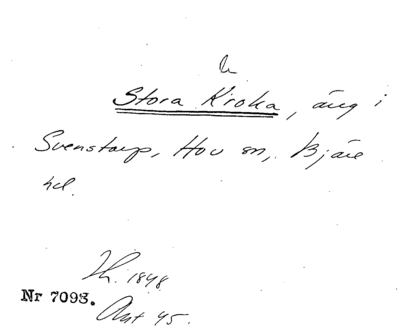 Stora Kroka, äng i
Svenstorp, Hov sn, Bjäre
hd.
1848
Nr 7093.
Akt 45.